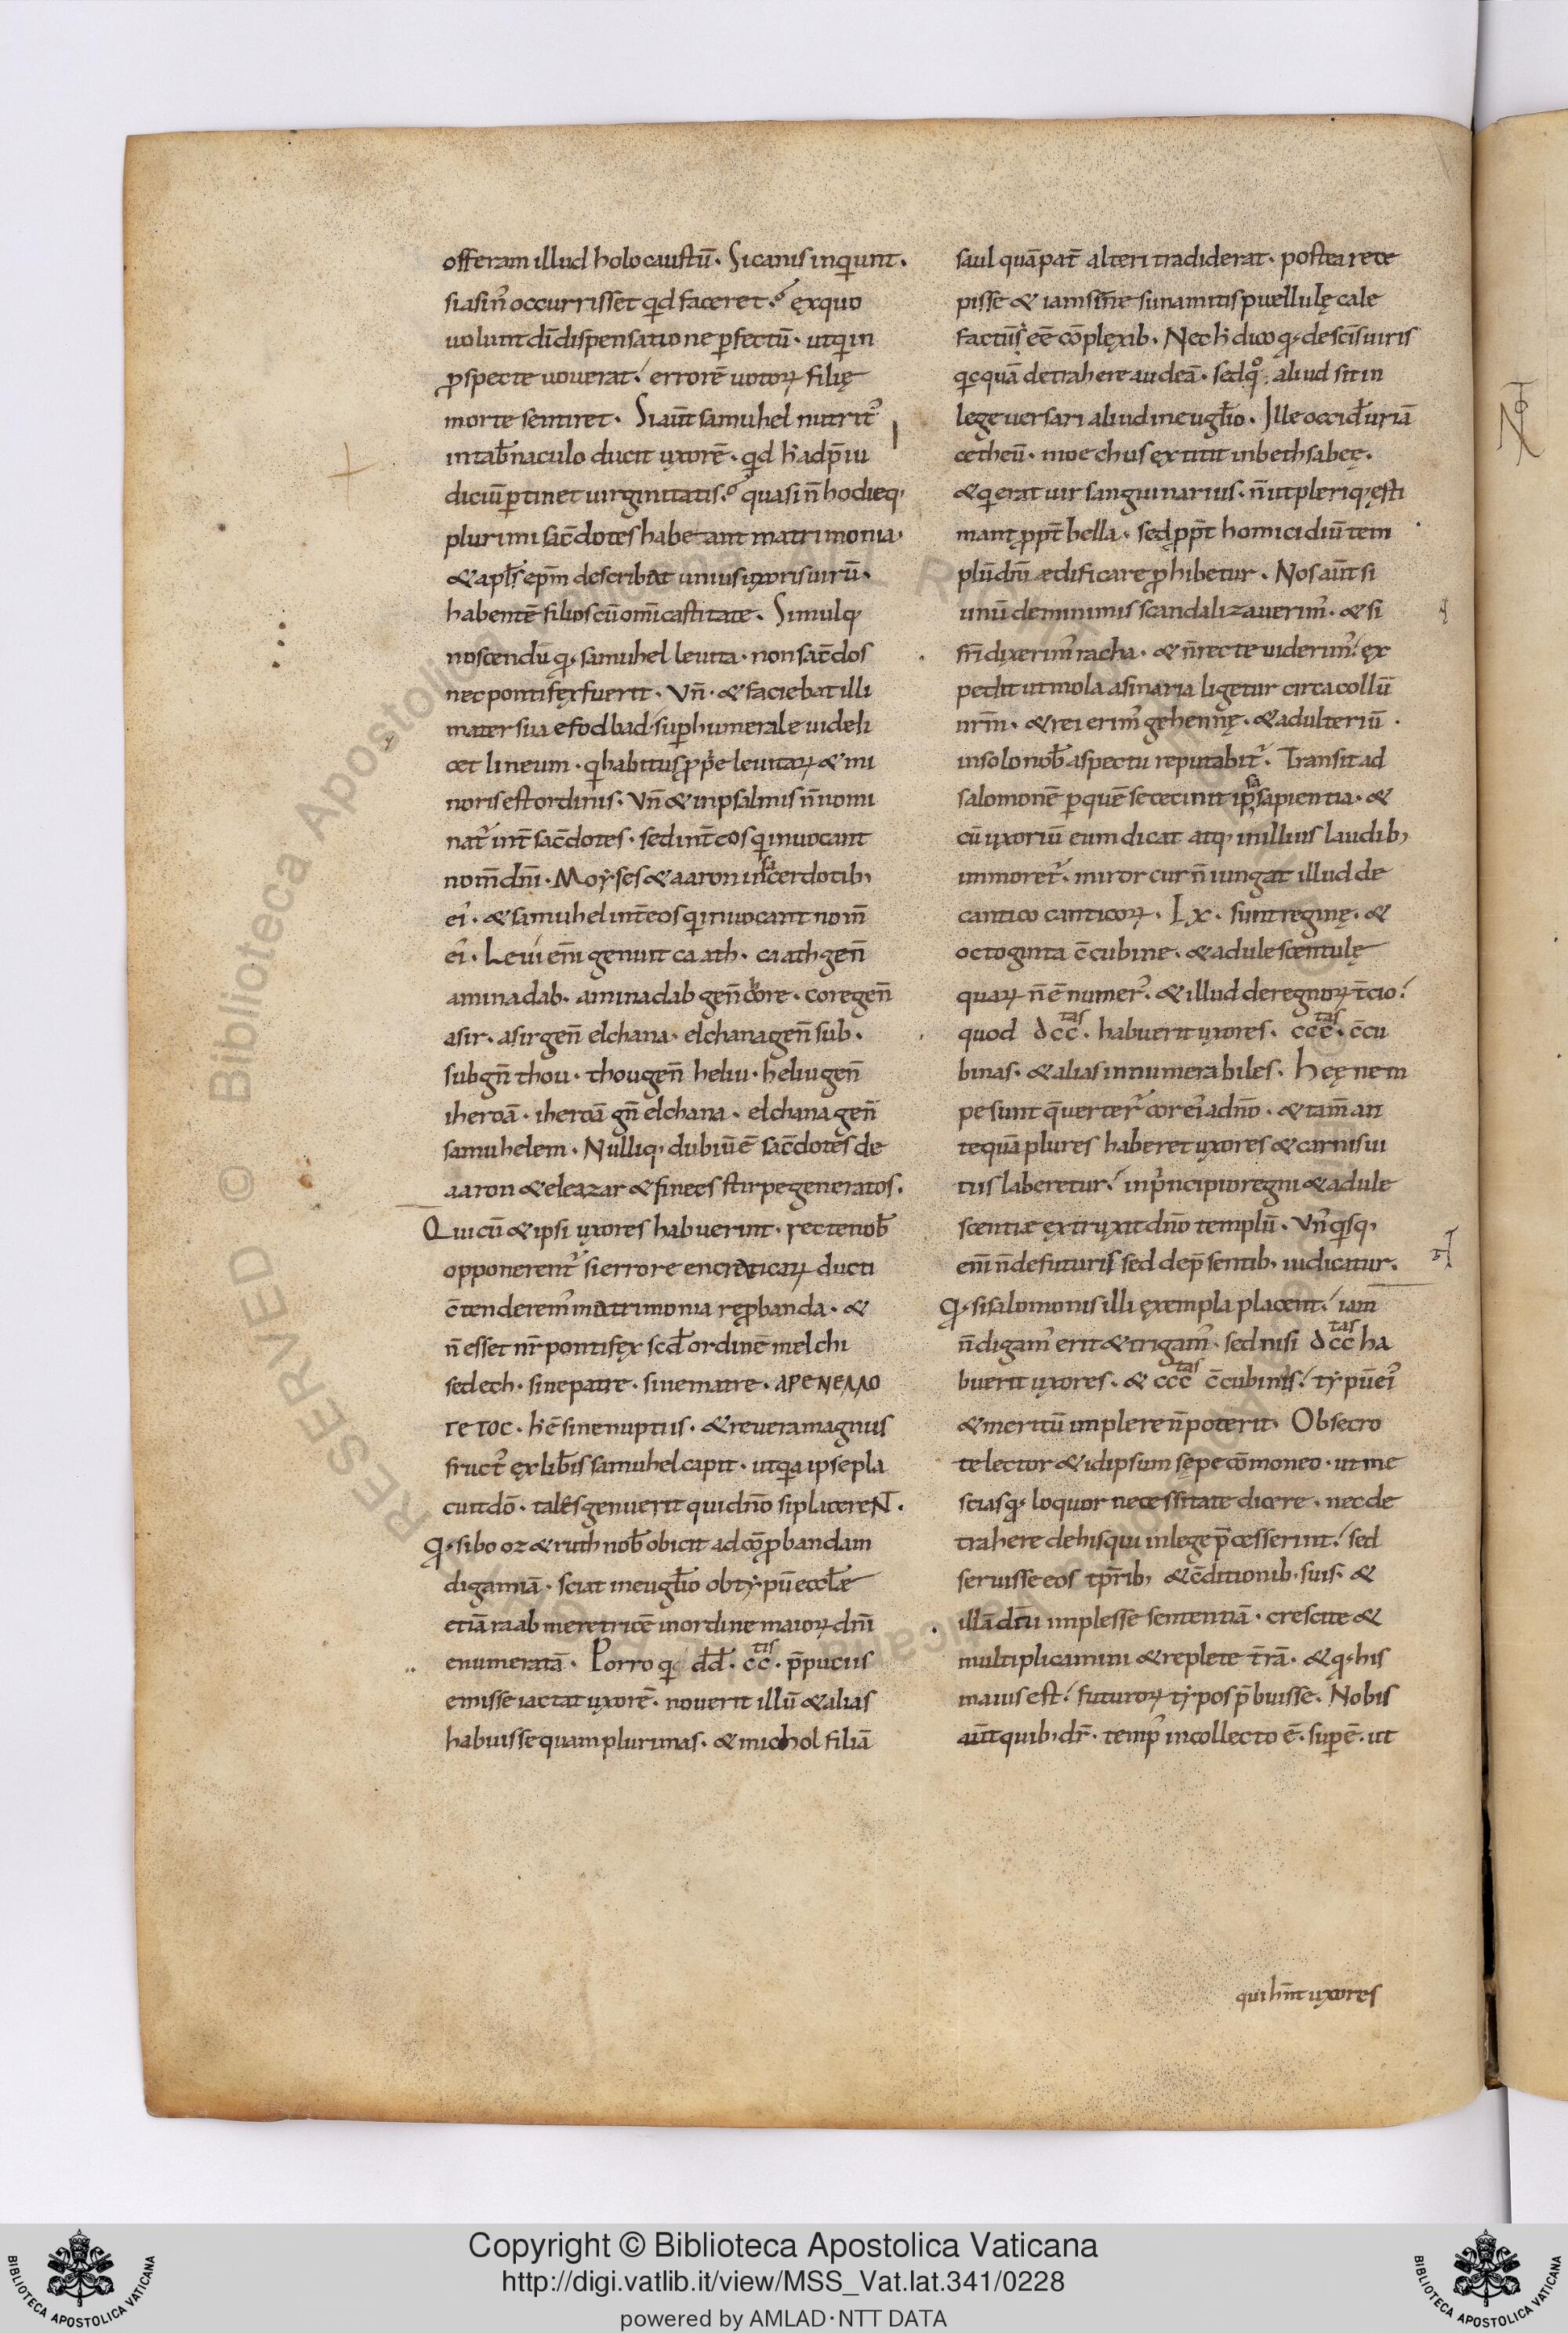 offeram illud holocaustū. Si canis inquiunt.
si asin᷒ occurrisset qd faceret? ex quo
uolunt dī dispensatione ꝑfectū. ut qi in
ꝓspecte uouerat. errorē uotoꝝ filię
morte sentiret. Si aūt samuhel nutrit᷒
in tab̄naculo ducit uxorē. qd h̄ ad p̄iu
diciū ꝑtinet uirginitatis? quasi n̄ hodieq;
plurimi sac̄dotes habeant matrimonia.
& apl̄s ep̄m describat unius uxoris uirū.
habentē filios cū om̄i castitate. Simulq;
noscendū qđ samuhel leuita. non sac̄dos
nec pontifex fuerit. Vn̄. & faciebat illi
mater sua efod bad sup̱humerale uideli
cet lineum. qi habitus ꝓpe leuitaꝝ & mi
noris est ordinis. Vn̄ & in psalmis n̄ nomi
nat᷒ int̄ sac̄dotes. sed int̄ eos qi inuocant
nom̄ dn̄i. Moyses & aaron in sacerdotib;
ei᷒. & samuhel int̄ eos qi inuocant nom̄
ei᷒. Leui em̄ genuit caath. caath gen̄
aminadab. aminadab gen̄ core. core gen̄
asir. asir gen̄ elchana. elchana gen̄ sub.
sub gn̄ thou. thou gen̄ heliu. heliu gen̄
iheroā. iheroā gn̄ elchana. elchana gen̄
samuhelem. Nulliq; dubiū ē sac̄dotes de
aaron & eleazar & finees stirpe generatos.
Qui cū & ipsi uxores habuerint. recte nob̄
opponerent᷒ si errore encraticaꝝ ducti
c̄tenderem᷒ matrimonia reꝓbanda. &
n̄ esset nr̄ pontifex scd̄ ordinē melchi
sedech. sine patre. sine matre. ΑΡΕΝΕΛΛΟ
ΓΕΤΟC. h̄ ē sine nuptiis. & reuera magnus
fruct᷒ ex lib̄is samuhel capit. ut qia ipse pla
cuit dō. tales genuerit qui dn̄o si placereNT.
Qđ si booz & ruth nob̄ obicit ad cōꝓbandam
digamiā. sciat in euḡlio ob typū eccl̄æ
etiā raab meretricē in ordine maioꝝ dn̄i
enumeratā. Porro qi dd̄. cc tis. p̄puciis
emisse iactat uxorē. nouerit illū & alias
habuisse quam plurimas. & michol filiā
saul quā pat̄ alteri tradiderat. postea rece
pisse & iam senē sunamitis puellulę cale
factū eē cōplexib. Nec h̄ dico qđ de sc̄is uiris
qicquā detrahere audeā. sed qo aliud sit in
lege uersari aliud in euḡlio. Ille occid̄ uriā
cetheū. moechus extitit in bethsabee.
& qi erat uir sanguinarius. n̄ ut pleriq; esti
mant ꝓpt̄ bella. sed ꝓpt̄ homicidiū tem
plū dn̄i ædificare ꝓhibetur. Nos aūt si
unū de minimis scandalizauerim᷒. & si
frī dixerim᷒ racha. & n̄ recte uiderim᷒. ex
pedit ut mola asinaria ligetur circa collū
nrm̄. & rei erim᷒ gehennę. & adulteriū.
in solo nob̄ aspectu reputabit᷒. Transit ad
salomonē ꝑ quē se cecinit ipsa sapientia. &
cū uxoriū eum dicat atq; in illius laudib;
immoret᷒. miror cur n̄ iungat illud de
cantico canticoꝝ. Lx. sunt reginę. &
octoginta c̄cubine. & adulescentulę
quaꝝ n̄ ē numer᷒. & illud de regnoꝝ t̄cio.
quod dcc tas. habuerit uxores. ccc tas. c̄cu
binas. & alias innumerabiles. Heę nem
pe sunt q̄ uerter̄ cor ei᷒ a dn̄o. & tam̄ an
tequā plures haberet uxores & carnis ui
tiis laberetur. in principio regni & adule
scentiæ extruxit dn̄o templū. Vn᷒qisq;
em̄ n̄ de futuris sed de p̄sentib; iudicatur.
Qđ si salomonis illi exempla placent. iam
n̄ digam᷒ erit & trigam᷒. sed nisi dcc tas ha
buerit uxores. & ccc tas c̄cubinas. typū ei᷒
& meritū implere n̄ poterit. Obsecro
te lector & id ipsum sępe cōmoneo. ut me
scias qđ loquor necessitate dicere. nec de
trahere de his qui in lege p̄cesserint. sed
seruisse eos tp̄rib; & c̄ditionib; suis. &
illā dn̄i implesse sententiā. crescite &
multiplicamini & replete t̄rā. & qđ his
maius est. futuroꝝ typos p̄buisse. Nobis
aūt quib; dr̄. temp᷒ in collecto ē. sup̱ ē. ut
qui hn̄t uxores